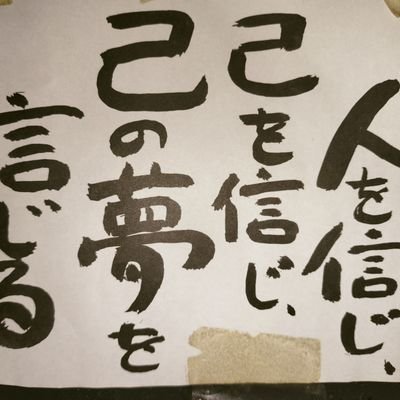 人を信じ、
己を信じ、
己の夢を
信じる